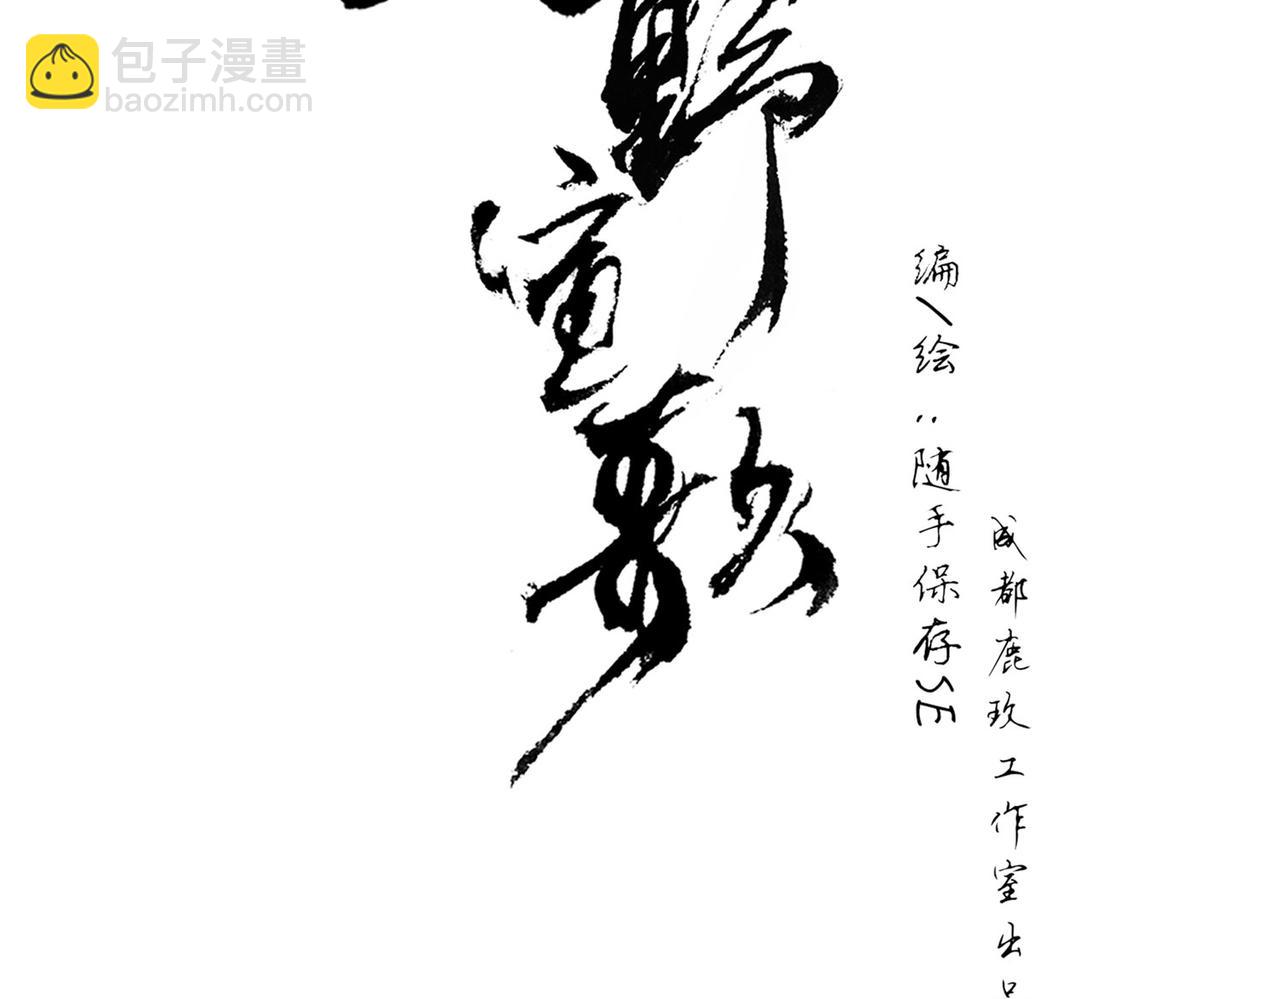 包子漫畫
baozimh.com
野
编/绘:随手保存SE
成都鹿玖工作室出